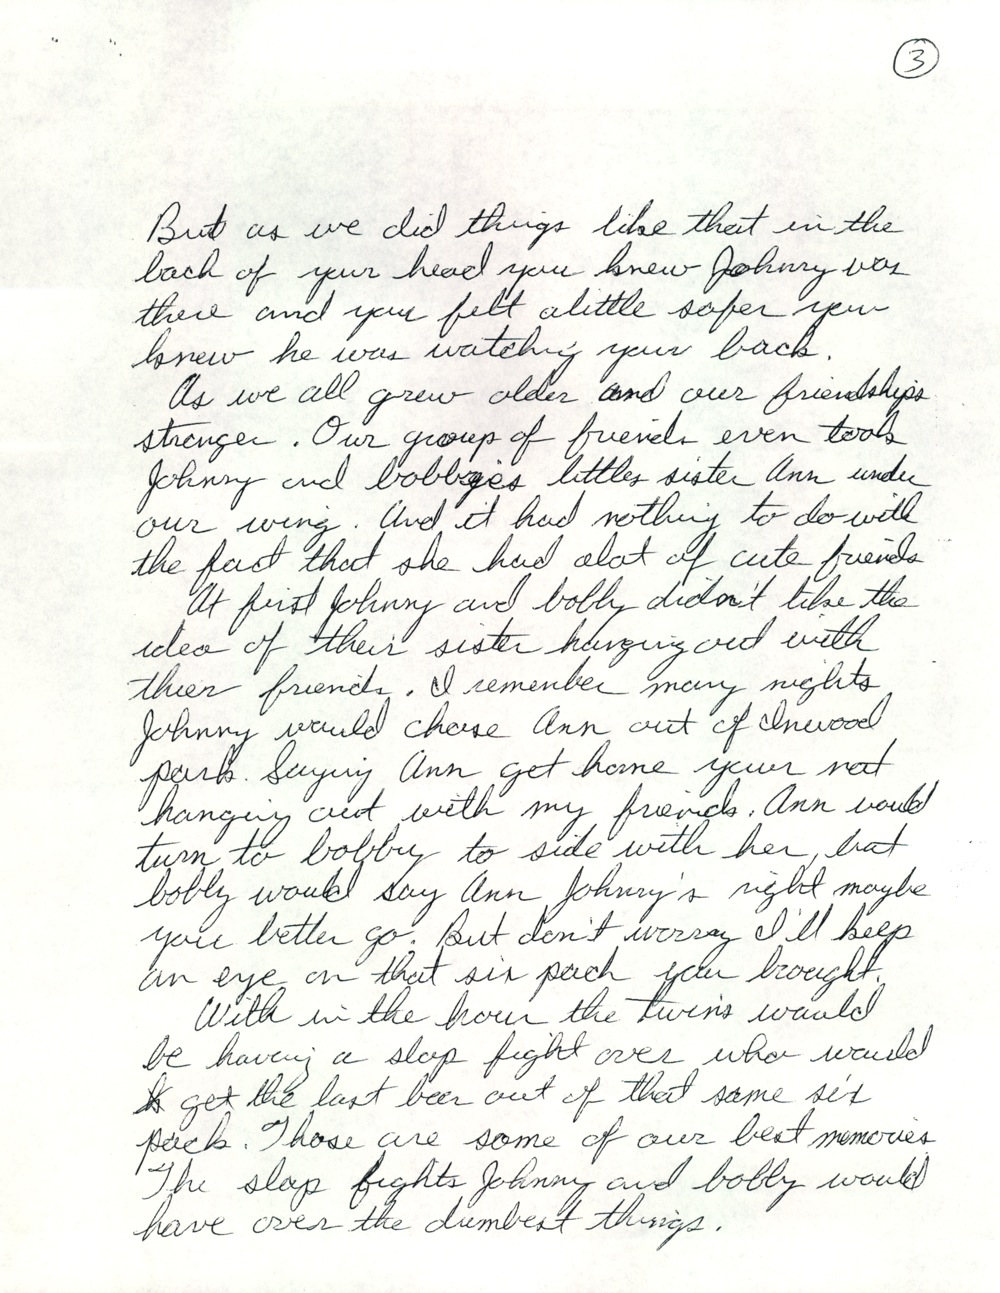 3
But as we did things like that in the
back of your head you knew Johnny was
there and you felt alittle safer you
knew he was watching your back.
As we all grew older and our friendships
stronger. Our group of friends even took
Johnny and bobbyies littles sister Ann under
our wing. And it had nothing to do with
the fact that she had alot of cute friends
At first Johnny and bobby didn't like the
idea of their sister hanging out with
thier friends. I remember many nights
Johnny would chase Ann out of Inwood
park. Saying Ann get home your not
hanging out with my friends. Ann would
turn to bobby to side with her, but
bobby would say Ann Johnny's right maybe
you better go. But don't worry I'll keep
an eye on that six pack you brought.
With in the hour the twins would
be having a slap fight over who would
get the last beer out of that same six
pack. Those are some of our best memories
The slap fights Johnny and bobby would
have over the dumbest things.